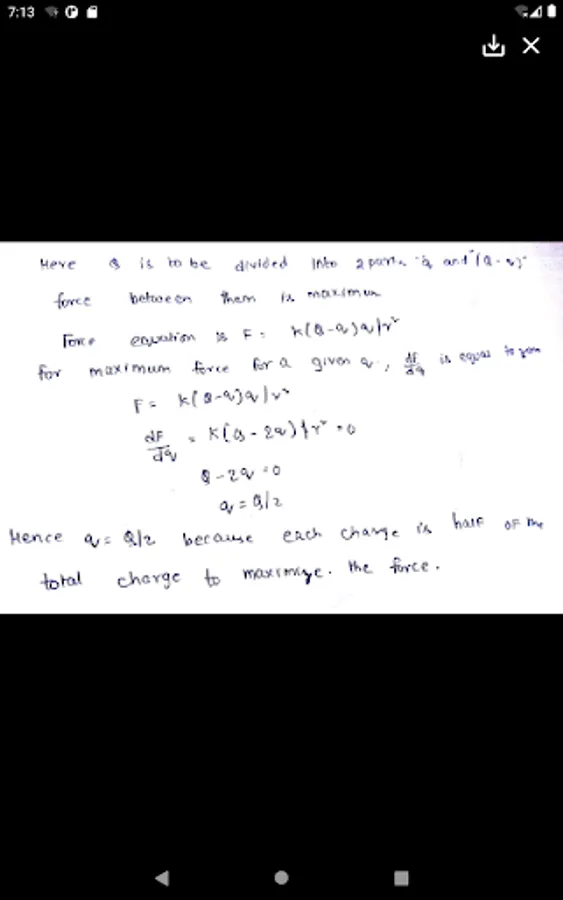 7:13
Here Q is to be divided into 2 parts "q and "(Q-q)"
force between them is maximum
Force equation is F = K(Q-q)q/r²
for maximum force for a given q, dF/dq is equal to zero
F = K(Q-q)q/r²
dF/dq = K(Q-2q)/r² = 0
Q-2q = 0
q = Q/2
Hence q = Q/2 because each charge is half OF the
total charge to maximize. the force.